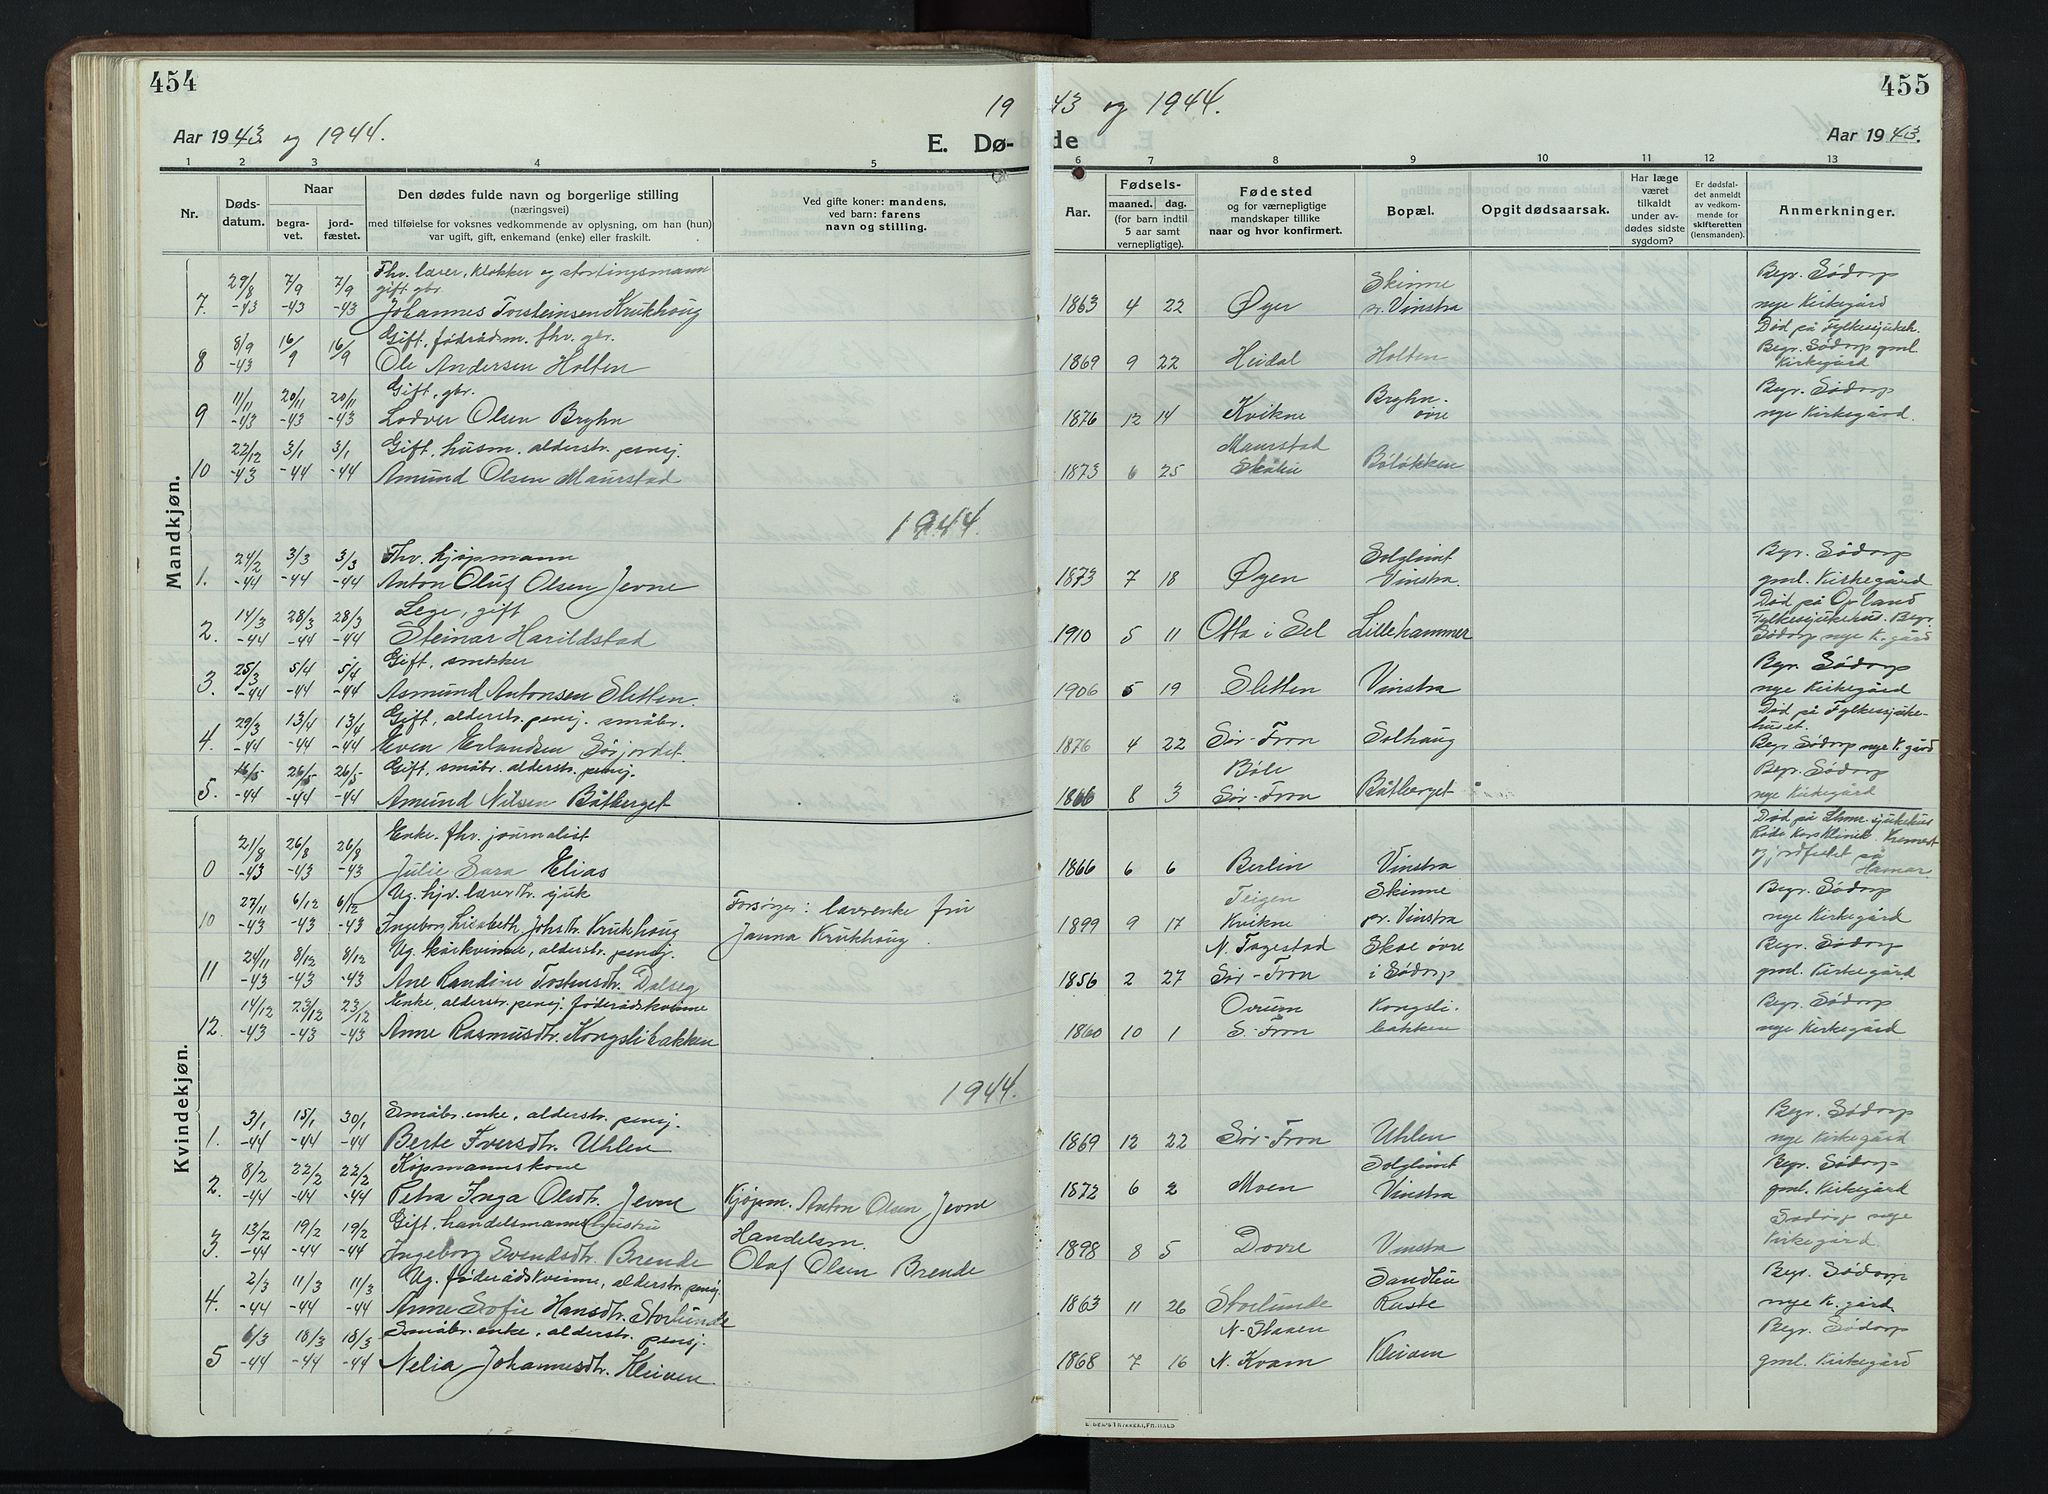 454
Aar 1943 og 1944.
E. Dø-
1 2 3 4 5
Nr.
Døds-
datum.
Naar
begra-
vet.
jord-
fæstet.
Den dødes fulde navn og borgerlige stilling
(næringsvei)
med tilføielse for voksnes vedkommende av oplysning, om han (hun)
var ugift, gift, enkemand (enke) eller fraskilt.
Ved gifte koner: mandens,
ved barn: farens
navn og stilling.
Mandkjøn.
29/8 7/9 7/9 Fhv. lærer, klokker og stortingsmann
gift gbr.
7. -43 -43 -43 Johannes Torsteinsen Krukhoug
8/9 16/9 16/9 Gift, fødrådsm. fhv. gbr.
8 -43 Ole Andersen Holten
11/11 20/11 20/11 Gift, gbr.
9 -43 -43 -43 Lodver Olsen Bryhn
22/12 3/1 3/1 Gift, husm. alderstr. pensj.
10 -43 -44 -44 Amund Olsen Maurstad
1944.
24/2 3/3 3/3 Fhv. kjøpmann
1. -44 -44 -44 Anton Oluf Olsen Jevne
14/3 28/3 28/3 Lege, gift
2. -44 -44 -44 Steinar Harildstad
25/3 5/4 5/4 Gift, snekker
3. -44 -44 -44 Asmund Antonsen Sletten.
29/3 13/4 13/4 Gift, alderstr. pensj. småbr.
4. -44 -44 -44 Even Erlandsen Sørjordet.
16/5 26/5 26/5 Gift, småbr. alderstr. pensj.
5. -44 -44 -44 Amund Nilsen Båtberget
Kvindekjøn.
21/8 26/8 26/8 Enke. fhv. journalist
0 -43 -43 -43 Julie Sara Elias
22/11 6/12 6/12 Ug. hjv. lærerdtr. sjuk
10 -43 -43 -43 Ingeborg Lisabeth Johsdtr. Krukhoug
Forsørger: lærerenke fru
Janna Krukhoug.
24/11 8/12 8/12 Ug. kårkvinne, alderstr. pensj.
11 -43 -43 -43 Ane Randine Tostensdtr. Dalseg
14/12 23/12 23/12 Enke, alderstr. pensj. føderådskvinne
12. -43 -43 -43 Anne Rasmusdtr. Kongslibakken
1944.
3/1 15/1 30/1 Småbr. enke, alderstr. pensj.
1. -44 -44 -44 Berte Iversdtr. Uhlen
8/2 22/2 22/2 Kjøpmannskone
2. -44 -44 -44 Petra Inga Olsdtr. Jevne
Kjøpm. Anton Olsen Jevne
13/2 19/2 19/2 Gift, handelsmannshustru
3 -44 -44 -44 Ingeborg Svendsdtr. Brende
Handelsm.
Olaf Olsen Brende
2/3 11/3 11/3 Ug. føderådskvinne, alderstr. pensj.
4. -44 -44 -44 Anne Sofie Hansdtr. Storlunde
6/3 18/3 18/3 Småbr. enke, alderstr. pensj.
5 -44 -44 -44 Nelia Johannesdtr. Kleiven
455
1943 og 1944.
de
Aar 1943.
6 7 8 9 10 11 12 13
Aar.
Fødsels-
maaned. dag.
(for barn indtil
5 aar samt
vernepligtige).
Fødested
og for værnepligtige
mandskaper tillike
naar og hvor konfirmert.
Bopæl.
Opgit dødsaarsak.
Har læge
været
tilkaldt
under av-
dødes sidste
sygdom?
Er dødsfal-
det anmeldt
av vedkom-
mende for
skifteretten
(lensmanden).
Anmerkninger.
Skinne
pr. Vinstra
1863 4 22 Øyer
Begr. Sødorp
nye kirkegård
Død på Fylkessjukeh.
1869 9 22 Heidal Holten
Begr. Sødorp gml.
Kirkegård
1876 12 14 Kvikne
Bryhn
øvre
Begr. Sødorp
nye Kirkegård.
Maurstad
1873 6 25 Skåbu Bøløkken
1873 7 18 Øyen
Solglimt
Vinstra.
Begr. Sødorp
gml. Kirkegård
1910 5 11 Otta i Sel Lillehammer
Død på Opland
Fylkessjukehus. Begr.
Sødorp nye K. gård
1906 5 19 Sletten Vinstra
Begr. Sødorp
nye Kirkegård
1876 4 22 Sør-Fron Solhaug
Død på Fylkessjuke-
huset
Begr. Sødorp nye K. gård
Bøle
1866 8 3 Sør-Fron Båtberget
Begr. Sødorp
nye Kirkegård
1866 6 6 Berlin Vinstra
Død på Lhmr. sjukehus
Røde Kors Klinik. Kremert
og jordfestet på
Hamar.
Teigen
1899 9 17 Kvikne
Skinne
pr. Vinstra
Begr. Sødorp
nye Kirkegård
N. Fagestad
1856 2 27 Sør-Fron
Skoe øvre
i Sødorp
Begr. Sødorp
gml. Kirkegård
Ovrum
1860 10 1 S. Fron
Kongsli-
bakken
Begr. Sødorp
nye Kirkegård.
1869 12 22 Sør-Fron Uhlen
Begr. Sødorp
nye Kirkegård
1872 6 2 Moen
Solglimt
Vinstra
Begr. Sødorp
gml. Kirkegård
1898 8 5 Dovre Vinstra
Sødorp nye
Kirkegård.
1863 11 26 Storlunde
Sandbu
Ruste
Begr. Sødorp
nye K. gård
N. Staxen
1868 7 16 N. Kvam Kleiven
Begr. Sødorp
gml. Kirkegård